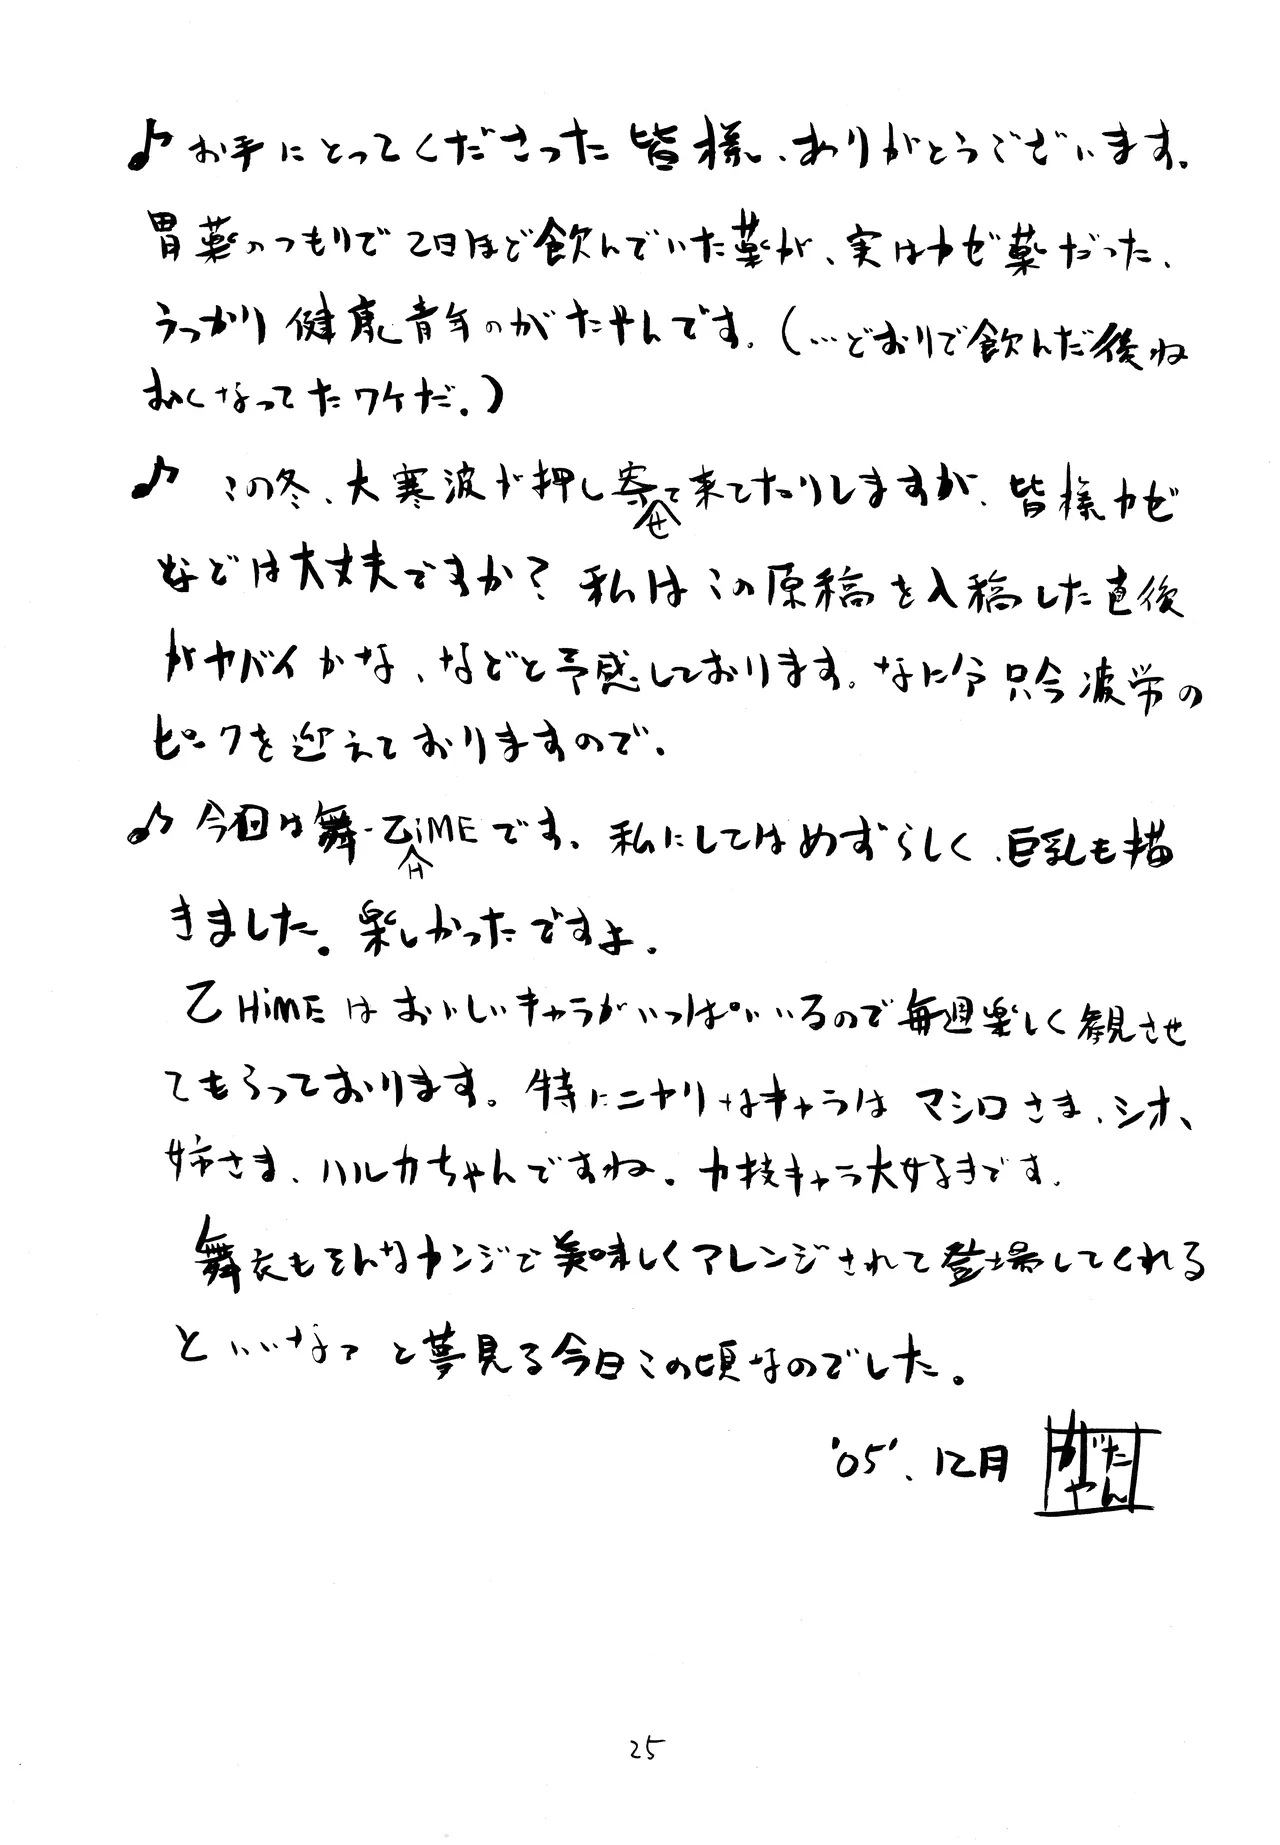 ♪お手にとってくださった皆様、ありがとうございます。
胃薬のつもりで2日ほど飲んでいた薬が、実はカゼ薬だった、
うっかり健康青年のがたやんです。(…どおりで飲んだ後ね
むくなってたワケだ。)
♪この冬、大寒波が押し寄せて来てたりしますが、皆様カゼ
などは大丈夫ですか? 私はこの原稿を入稿した直後
がヤバイかな、などと予感しております。なにせ只今疲労の
ピークを迎えておりますので。
♪今回は舞-乙HiMEです。私にしてはめずらしく、巨乳も描
きました。楽しかったですよ。
乙HiMEはおいしいキャラがいっぱいいるので毎週楽しく観させ
てもらっております。特にニヤリなキャラはマシロさま、シオ、
姉さま、ハルカちゃんですね。力技キャラ大好きです。
舞衣もそんなカンジで美味しくアレンジされて登場してくれる
といいなっと夢見る今日この頃なのでした。
'05'、12月 がたやん
25